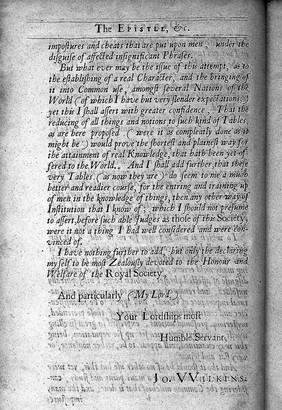 The EPISTLE, &c.
impostures and cheats that are put upon men, under the
disguise of affected insignificant Phrases.
But what ever may be the issue of this attempt, as to
the establishing of a real Character, and the bringing of
it into Common use, amongst several Nations of the
World (of which I have but very slender expectations)
yet this I shall assert with greater confidence, That the
reducing of all things and notions to such kind of Tables,
as are here proposed (were it as compleatly done as it
might be) would prove the shortest and plainest way for
the attainment of real Knowledge, that hath been yet of-
fered to the World. And I shall add further that these
very Tables (as now they are) do seem to me a much
better and readier course, for the entring and training up
of men in the knowledge of things, then any other way of
Institution that I know of; which I should not presume
to assert before such able Judges as those of this Society,
were it not a thing I had well considered and were con-
vinced of.
I have nothing further to add, but only the declaring
my self to be most Zealously devoted to the Honour and
Welfare of the Royal Society,
And particularly (My Lord,)
Your Lordships most
Humble Servant,
JO. WILKINS.